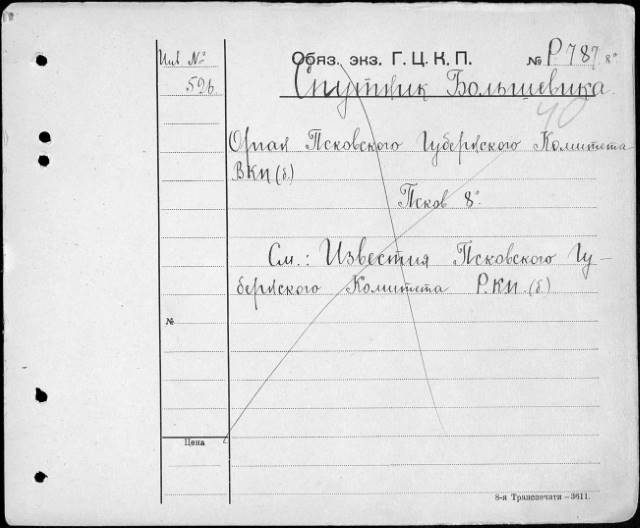 Инв №
526
Обяз. экз. Г. Ц. К. П. № Р787 8°
Спутник Большевика.
40
Орган Псковского Губернского Комитета
ВКП (б.)
Псков 8°.
См.: Известия Псковского Гу-
бернского Комитета РКП. (б)
№
Цена
8-я Транспечати — 3611.